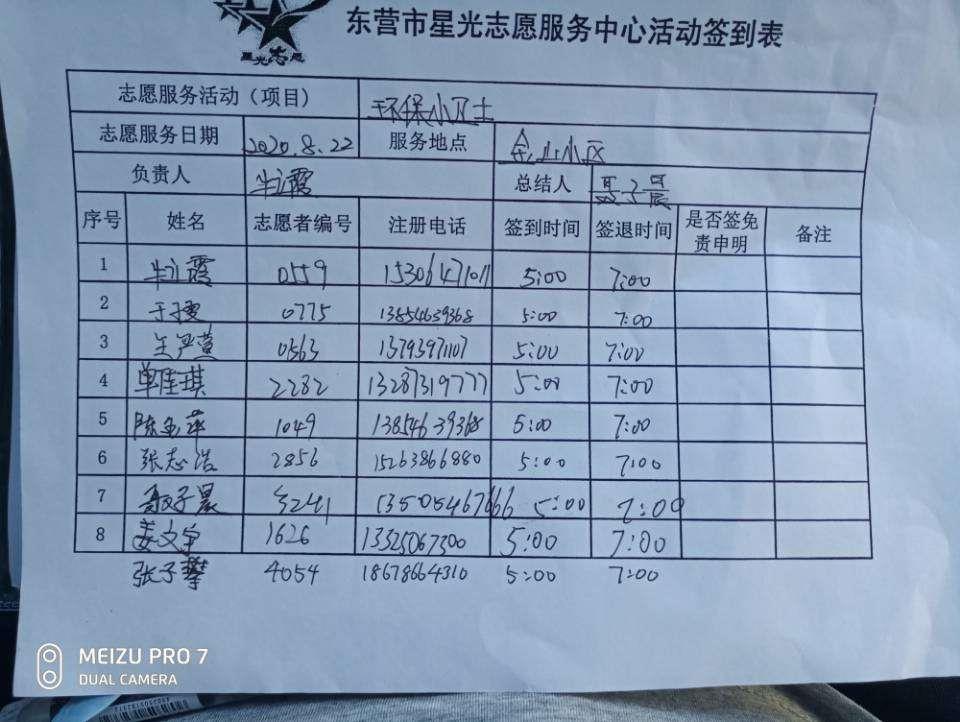 星光志愿
东营市星光志愿服务中心活动签到表
志愿服务活动（项目） 环保小卫士
志愿服务日期 2020.8.22 服务地点 金山小区
负责人 牟立霞 总结人 聂子晨
序号 姓名 志愿者编号 注册电话 签到时间 签退时间 是否签免责申明 备注
1 牟立霞 0559 15306471011 5:00 7:00
2 0775 13854639368 5:00 7:00
3 0563 13793971107 5:00 7:00
4 单佳琪 2282 13287319777 5:00 7:00
5 1049 13854639368 5:00 7:00
6 张志浩 2856 15263866880 5:00 7:00
7 聂子晨 3241 13505467666 5:00 7:00
8 姜文宇 1626 13325067300 5:00 7:00
张子攀 4054 18678664310 5:00 7:00
MEIZU PRO 7
DUAL CAMERA